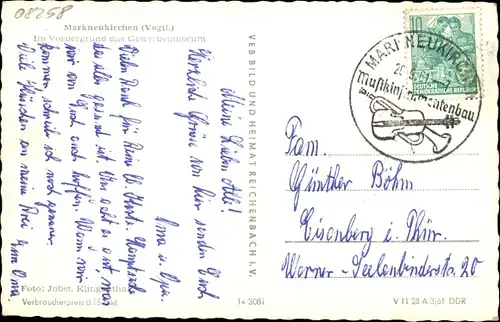 08258
Markneukirchen (Vogtl.)
Im Vordergrund das Gewerbemuseum
Meine Lieben Alle!
Herzliche Grüsse von hier senden Euch
Oma u. Opa.
Vielen Dank für Deine lb. Karte. Hauptsache
daß alles gesund ist. Uns geht es gut was
wir von Euch auch hoffen. Wenn wir
kommen schreibe ich noch genauer.
Viele an meine Drei Eure Oma
Foto: Jobst, Klingenthal
Verbraucherpreis 0,15 DM
VEB BILD UND HEIMAT REICHENBACH I. V.
14-308i
V 11 28 A 3/61 DDR
10
DEUTSCHE
DEMOKRATISCHE REPUBLIK
MARKNEUKIRCHEN
Musikinstrumentenbau
Fam.
Günther Böhm
Eisenberg i. Thür.
Werner-Seelenbinderstr. 20